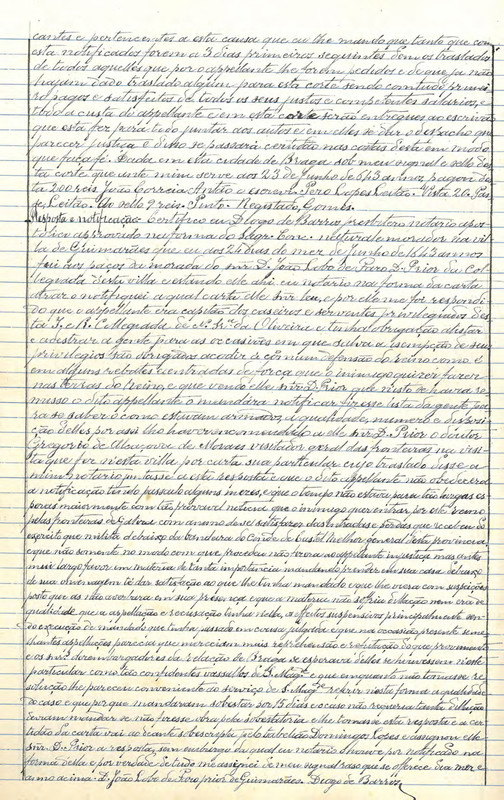 cantes e pertencentes a esta causa que eu lhe mando que tanto que com
esta notificados forem a 3 dias primeiros seguintes dem os traslados
de todos aquelles que por o appellante lhe forem pedidos e de que ja não
hajam dado traslado algum para esta corte sendo comtudo primei
ro pagos e satisfeitos de todos os seus justos e competentes salarios, e
tudo á custa do appellante e em esta corte serão entregues ao escrivão
que esta fez para tudo juntar aos autos e em elles se dar o despacho que
parecer justiça e disso se passará certidão nas costas desta em modo
que faça fé. Dada em esta cidade de Braga sob meu signal e sello des
ta corte que ante mim serve aos 23 de Junho de 643 annos pagou des
ta 200 reis. João Correia Antão a escrevi. Pero Lopes Leitão. Vista 20. Pas
de Leitão. Ao sello 9 reis. Pinto. Registado Gomes.
Resposta e notificação. Certifico eu Diogo de Barros presbitero notario apos
tolico approvado na forma do Sagr. Conc. natural e morador na vil
la de Guimarães que eu aos 24 dias do mez de Junho de 1643 annos
fui aos paços da morada do snr D. João Lobo de Faro D. Prior da Col
legiada desta villa e estando elle ahi eu notario na forma da carta
atraz o notifiquei a qual carta elle snr leu, e por elle me foi respondi
do que o appellante era capitão dos caseiros e serventes privilegiados des
ta I. e R. Collegiada de N. Srª da Oliveira e tinha obrigação alistar
e adestrar a gente para as occasiões em que salva a isempção de seus
privilegios são obrigados acodir á commum defensão do reino como é
em alguns rebates e entradas de força que o inimigo quizer fazer
nas terras do reino, e que vendo elle snr D. Prior que nisto se havia re
misso o dito appellante o mandára notificar fizesse lista da gente pa
ra se saber o como estavam armados, a qualidade, numero e disposi
ção delles por assi lho haver encommendado a elle snr D. Prior o doutor
Gregorio de Alcaçova de Moraes visitador geral das fronteiras na visi
ta que fez n'esta villa por carta sua particular cujo traslado disse a
mim notario juntasse a esta resposta e que o dito appellante não obedecera
a notificação tendo passado alguns mezes, e que o tempo não estava para tão largas es
peras maiormente com tão provavel noticia que o inimigo quer entrar por este reino
pelas fronteiras de Galliza com animo de se satisfazer das entradas e perdas que recebeu o
exercito que milita debaixo da bandeira do Conde de Castel Melhor general desta provincia,
e que não somente no modo com que procedeu não fora ao appellante injustiça mas antes
mais largo favor em materia de tanta importancia mandando prender em sua casa debaixo
de sua omenagem té dar satisfação ao que lhe tinha mandado e que lhe viera com suspeições
posto que as não averbara em sua presença e que a materia não soffria dillação nem era de
qualidade que a appellação e recusação tinha nella, o effeitos suspensivos principalmente sen
do execução de mandado que tinha passado em cousa julgada e que na occasião presente seme
lhantes appellações parecia que mereciam mais reprehensão e rejeitação do que provimento
e os snrs desembargadores da relação de Braga se esperava delles se houvessem n'este
particular como tão confidentes vassallos de S. Magde e que emquanto não tomasse re
solução lhe pareceu conveniente ao serviço de S. Magde referir nesta forma a qualidade
do caso e que por que mandaram sobestar por 15 dias e o caso não requeria tanta dillação
deviam mandar se não fizesse obra pela sobestatoria e lhe tomasse esta resposta e a cer
tidão da carta vai ao deante subscripta pelo tabellião Domingos Lopes e assignou elle
Snr D. Prior a resposta, sem embargo da qual eu notario o houve por notificado na
forma della e por verdade de tudo me assignei de meu signal raso que se offerece dia mez e
anno de imá. D. João Lobo de Faro prior de Guimarães. Diogo de Barros